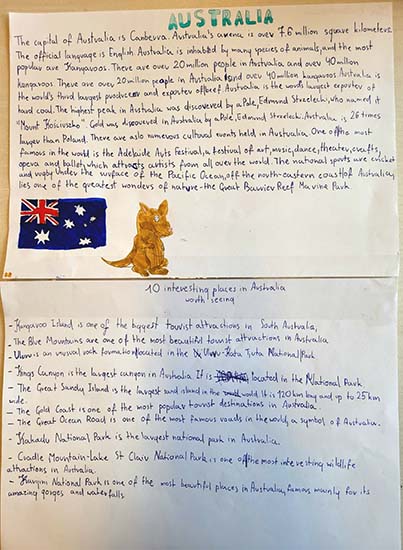 AUSTRALIA
The capital of Australia is Canberra. Australia's avena is over 7.6 million square kilometers.
The official language is English. Australia is inhabited by many species of animals, and the most
popular are kangaroos. There are over 20 million people in Australia and over 40 million
kangaroos There are over 20 million people in Australia and over 40 million kangaroos Australia is
the world's third largest producer and exporter of beef. Australia is the world's largest exporter of
hard coal. The highest peak in Australia was discovered by a Pole, Edmund Strzelecki, who named it
"Mount Kosciuszko" Gold was discovered in Australia by a Pole, Edmund Strzelecki. Australia is 26 times
larger than Poland. There are aslo numerous cultural events held in Australia One of the most
famous in the world is the Adelaide Arts Festival, a festival of art, music, dance, theater, crafts,
opera and ballet, which attracts artists from all over the world. The national sports are cricket
and rugby Under the surface of the Pacific Ocean, off the north-eastern coast of Australia,
lies one of the greatest wonders of nature - the Great Barrier Reef Marine Park.
10 interesting places in Australia
worth seeing
- Kangaroo Island is one of the biggest tourist attractions in South Australia,
- The Blue Mountains are one of the most beautiful tourist attractions in Australia
- Uluru is an unusual rock formation located in the Uluru-Kata Tjuta National Park
- Kings Canyon is the largest canyon in Australia It is located in the National Park
- The Great Sandy Island is the largest sand island in the world. It is 120 km long and up to 25 km
wide.
- The Gold Coast is one of the most popular tourist destinations in Australia.
- The Great Ocean Road is one of the most famous roads in the world, a symbol of Australia.
- Kakadu National Park is the largest national park in Australia.
- Cradle Mountain-Lake St Clair National Park is one of the most interesting wildlife
attractions in Australia.
- Karijini National Park is one of the most beautiful places in Australia, famous mainly for its
amazing gorges and waterfalls